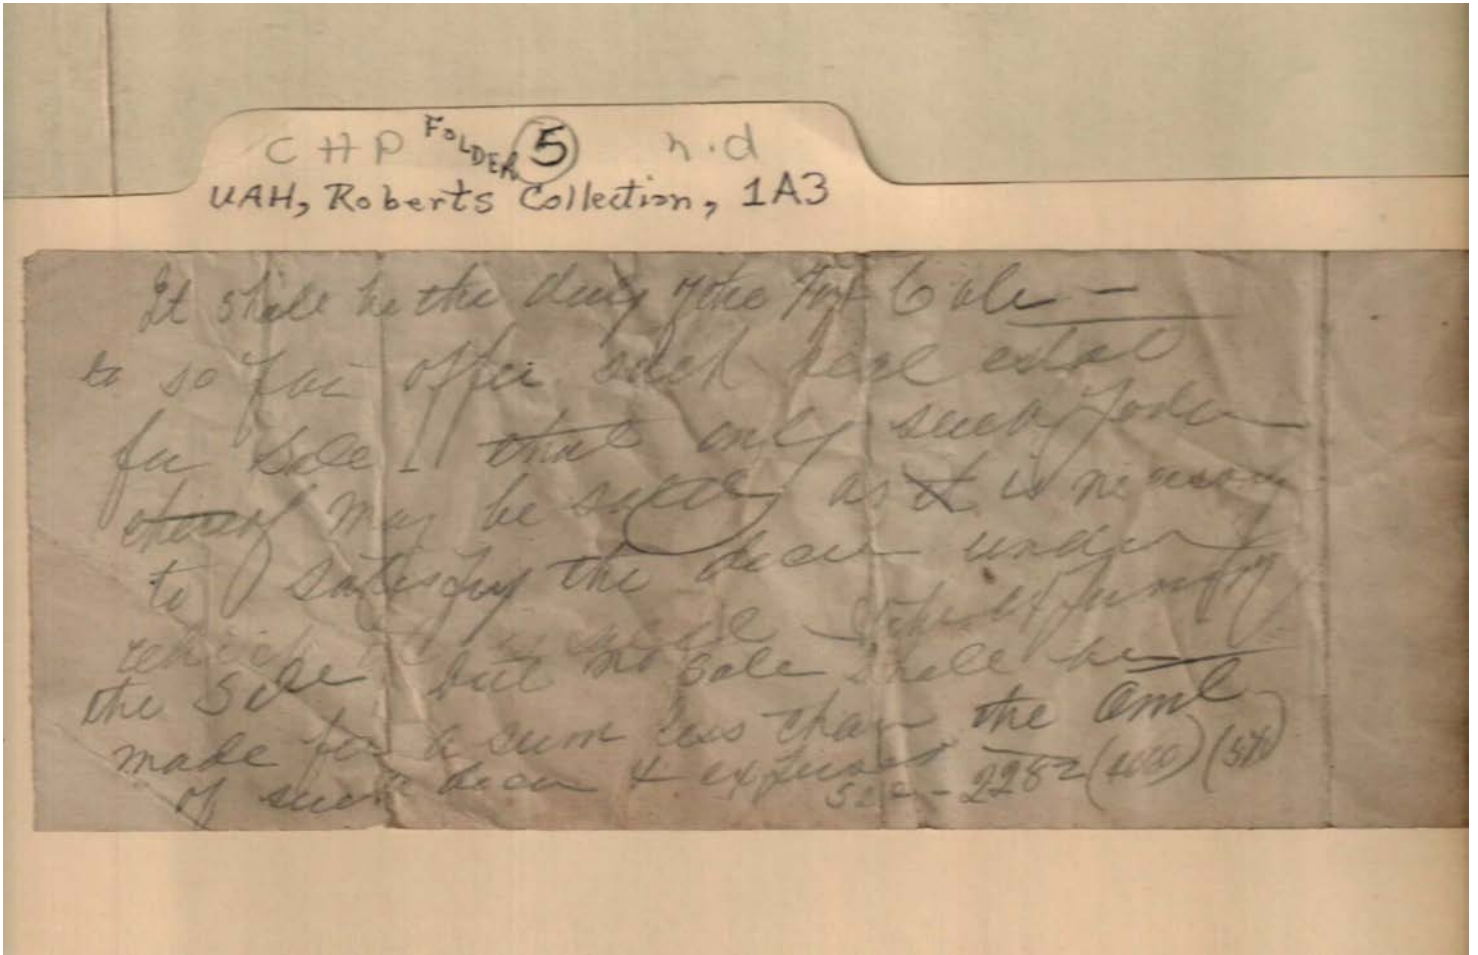 CHP FOLDER 5 n.d
UAH, Roberts Collection, 1A3
It shall be the duty of the Tax Col
to so far offer such real estate
for sale - that only such
thereof may be as it is necessary
to satisfy the decree under
which sale
the sale but no sale shall be
made for a sum less than the Amt
of such decree & expenses
sec - 2282